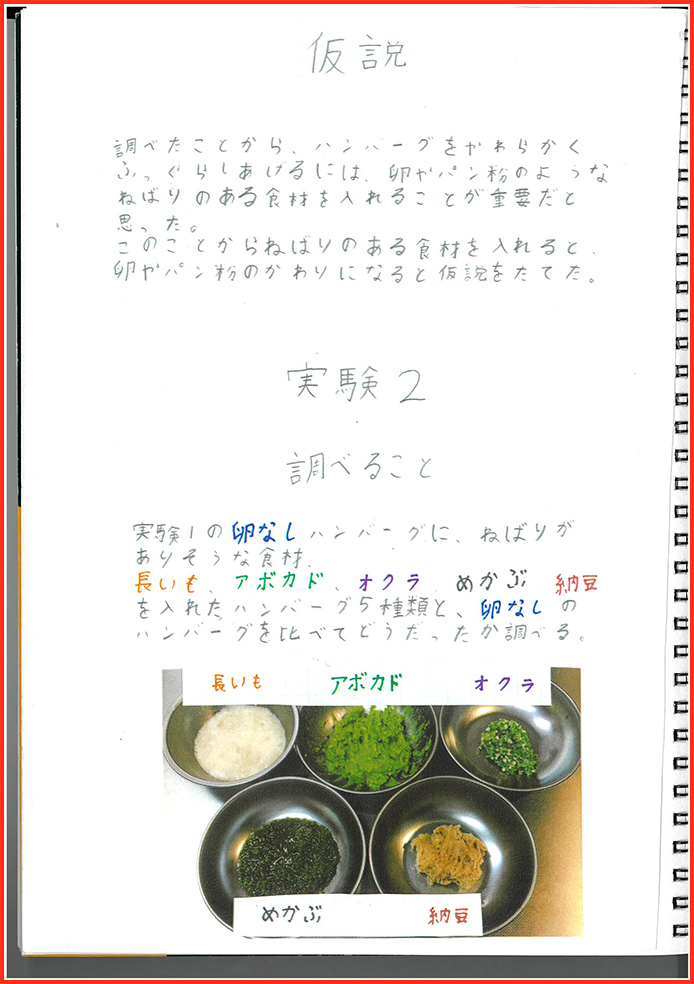 仮説
調べたことから、ハンバーグをやわらかく
ふっくらしあげるには、卵やパン粉のような
ねばりのある食材を入れることが重要だと
思った。
このことからねばりのある食材を入れると、
卵やパン粉のかわりになると仮説をたてた。
実験2
調べること
実験1の卵なしハンバーグに、ねばりが
ありそうな食材、
長いも、アボカド、オクラ、めかぶ 納豆
を入れたハンバーグ5種類と、卵なしの
ハンバーグを比べてどうだったか調べる。
長いも アボカド オクラ
めかぶ 納豆